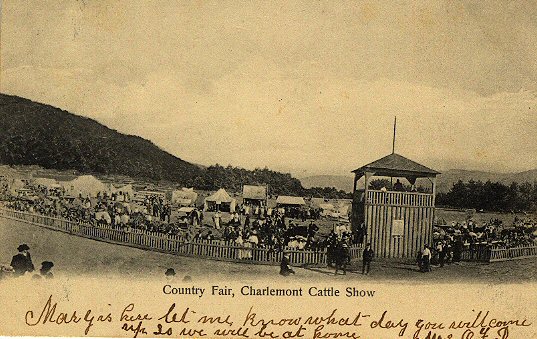 Country Fair, Charlemont Cattle Show
Mary is here let me know what day you will come
up so we will be at home Mrs